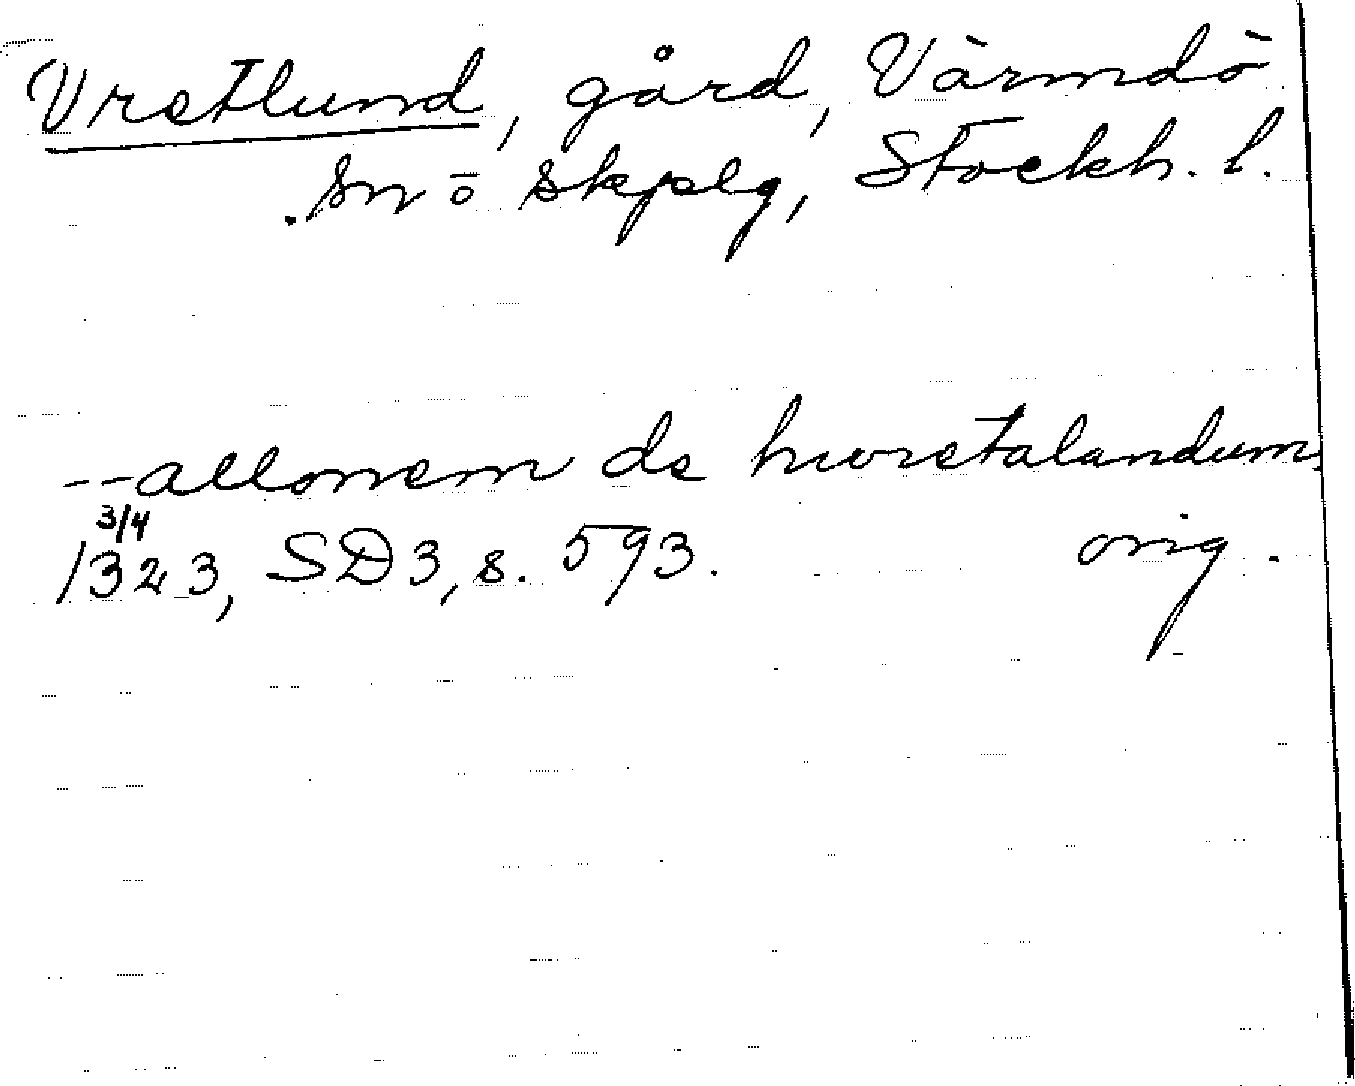 Vretlund, gård, Värmdö
sn o skplg, Stockh. l.
--allonem de hworetalandum
3/4
1323, SD 3, s. 593. orig.